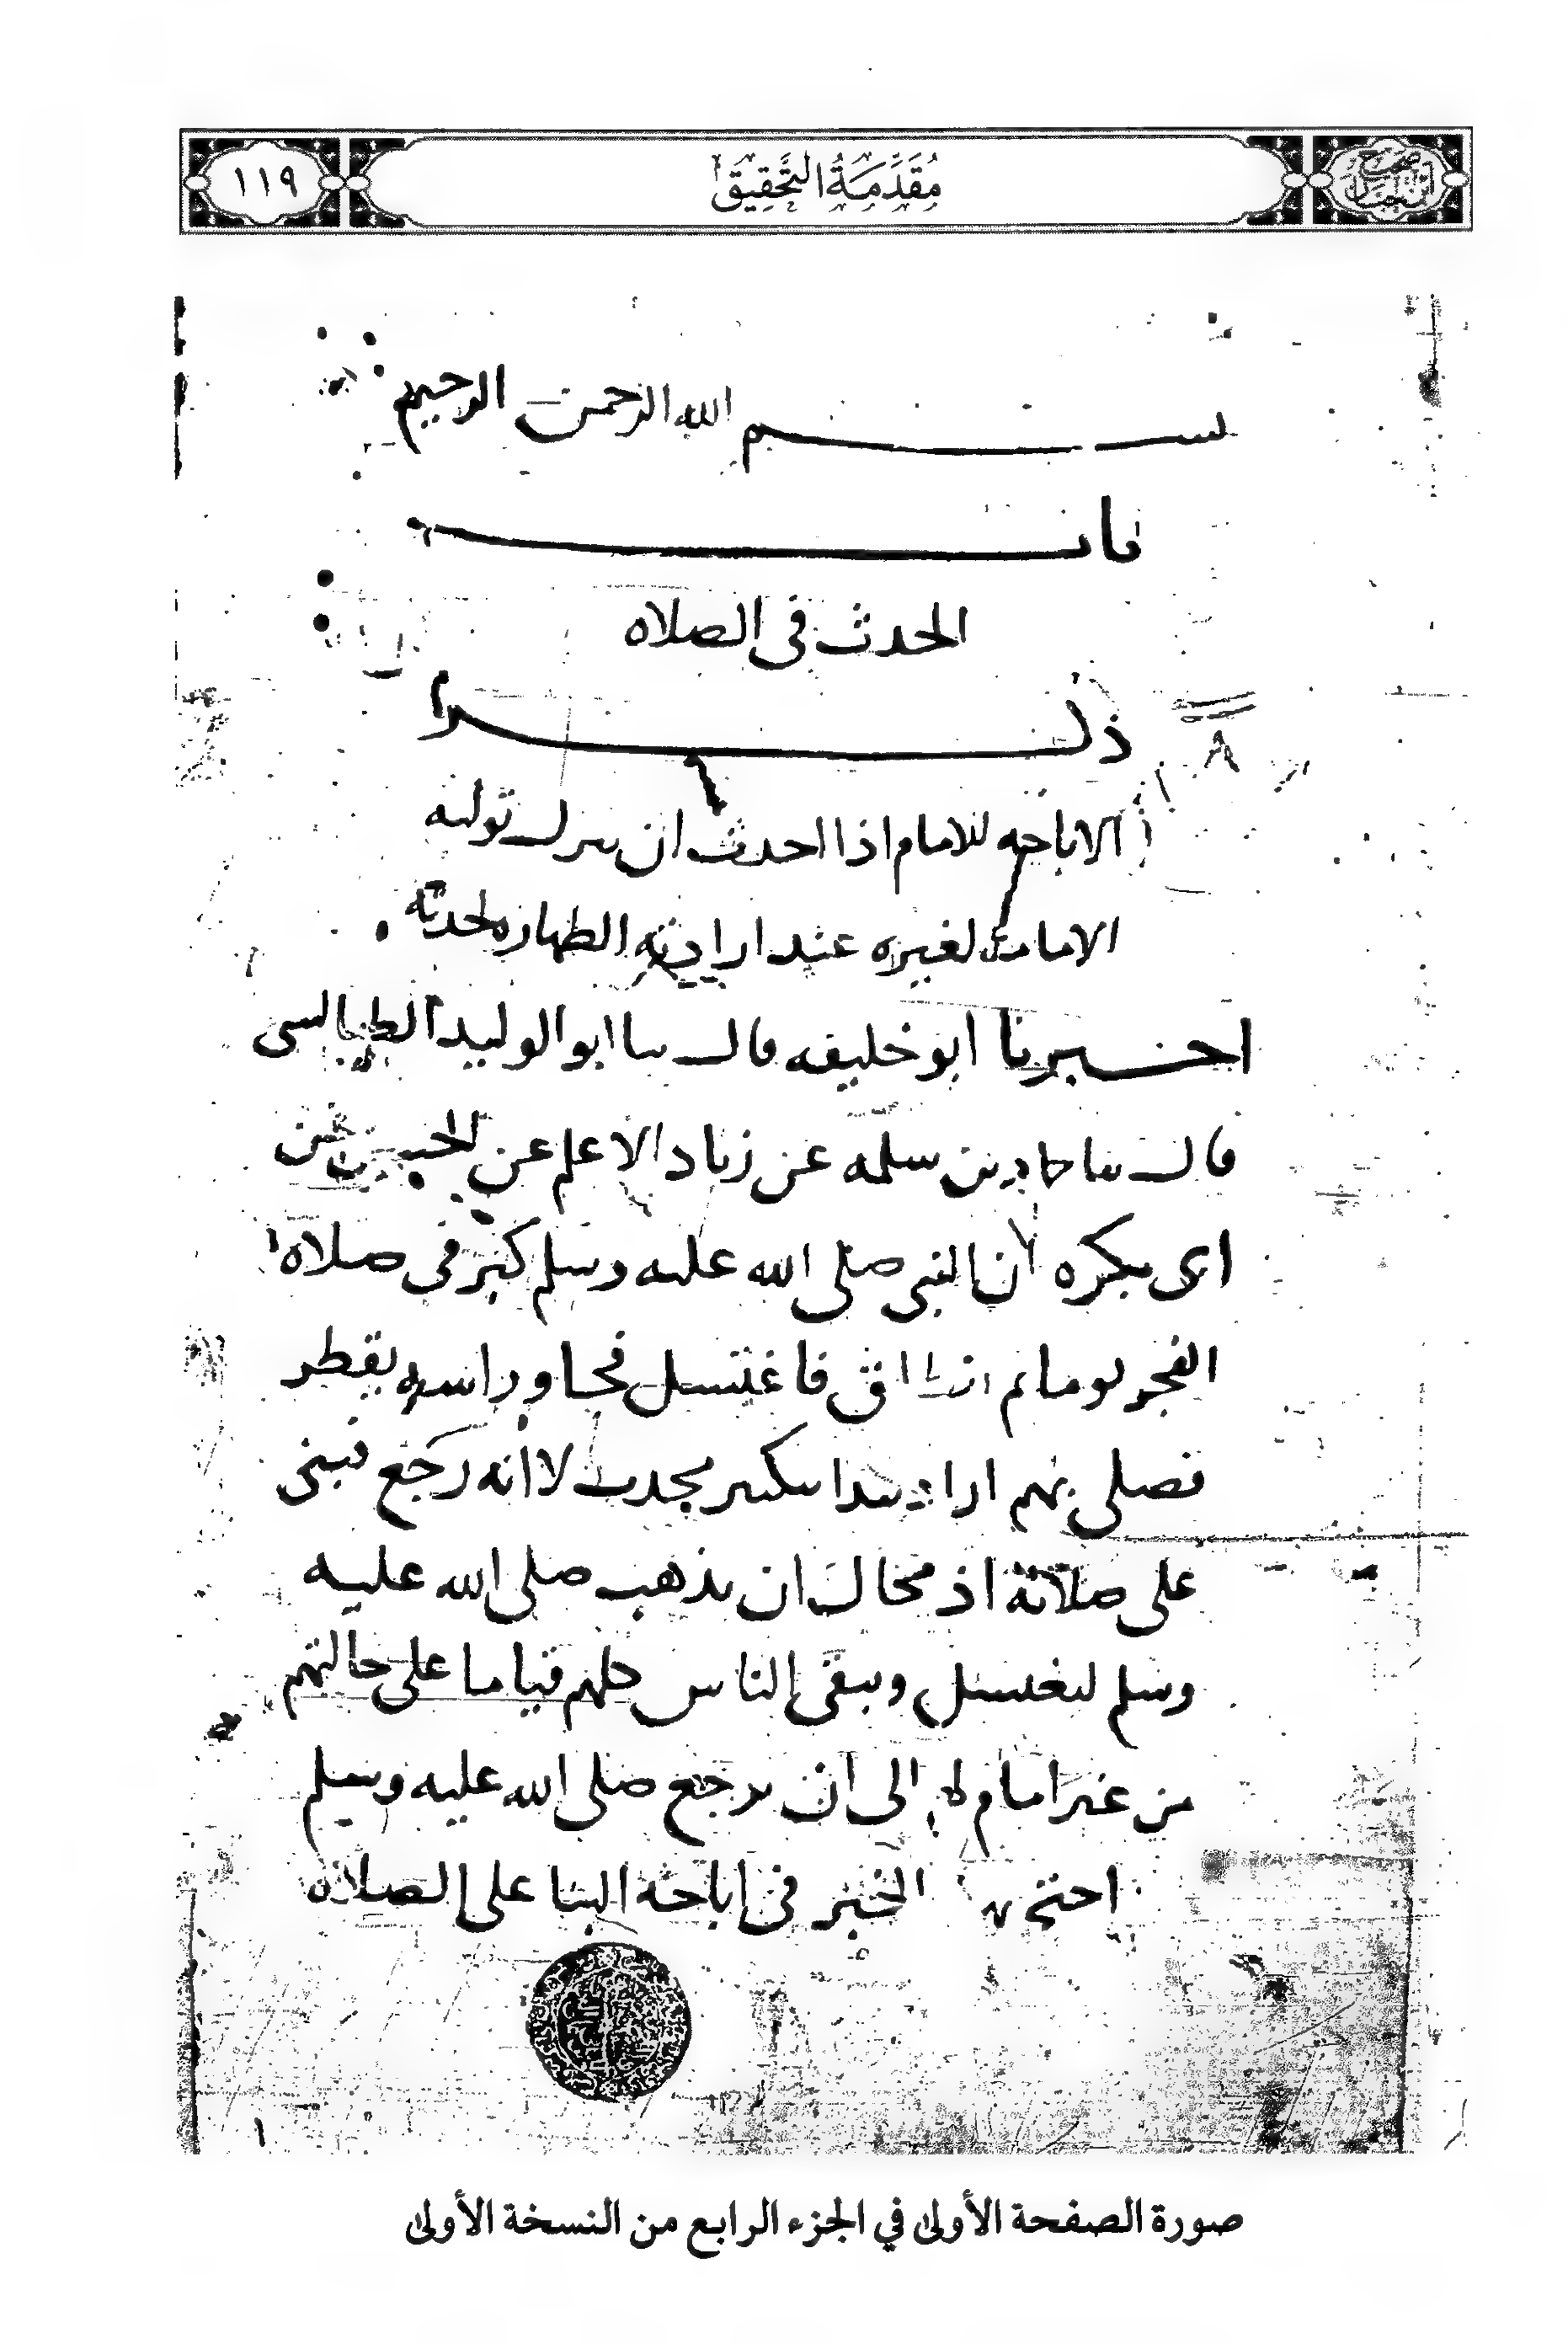 ١١٩
مُقَدَّمَةُ التَّحْقِيقَ
بسم الله الرحمن الرحيم
باب
الحدث فى الصلاه
ذكر
الاباحه للامام اذا احدث ان يترك توليه
الامامه لغيره عند ارادته الطهاره لحدثه
اخبرنا ابو خليفه قال ثنا ابو الوليد الطيالسى
قال ثنا حماد بن سلمه عن زياد الاعلم عن الحسن عن
ابى بكره ان النبى صلى الله عليه وسلم كبر فى صلاه
الفجر يوما ثم فاغتسل فجا وراسه يقطر
فصلى بهم اراد يبدا بتكبير محدث لا انه رجع فبنى
على صلاته اذ محال ان يذهب صلى الله عليه
وسلم ليغتسل ويبقى الناس كلهم قياما على حالتهم
من غير امام الى ان يرجع صلى الله عليه وسلم
احتج الخبر فى اباحه البنا على الصلاه
صورة الصفحة الأولىٰ في الجزء الرابع من النسخة الأولىٰ